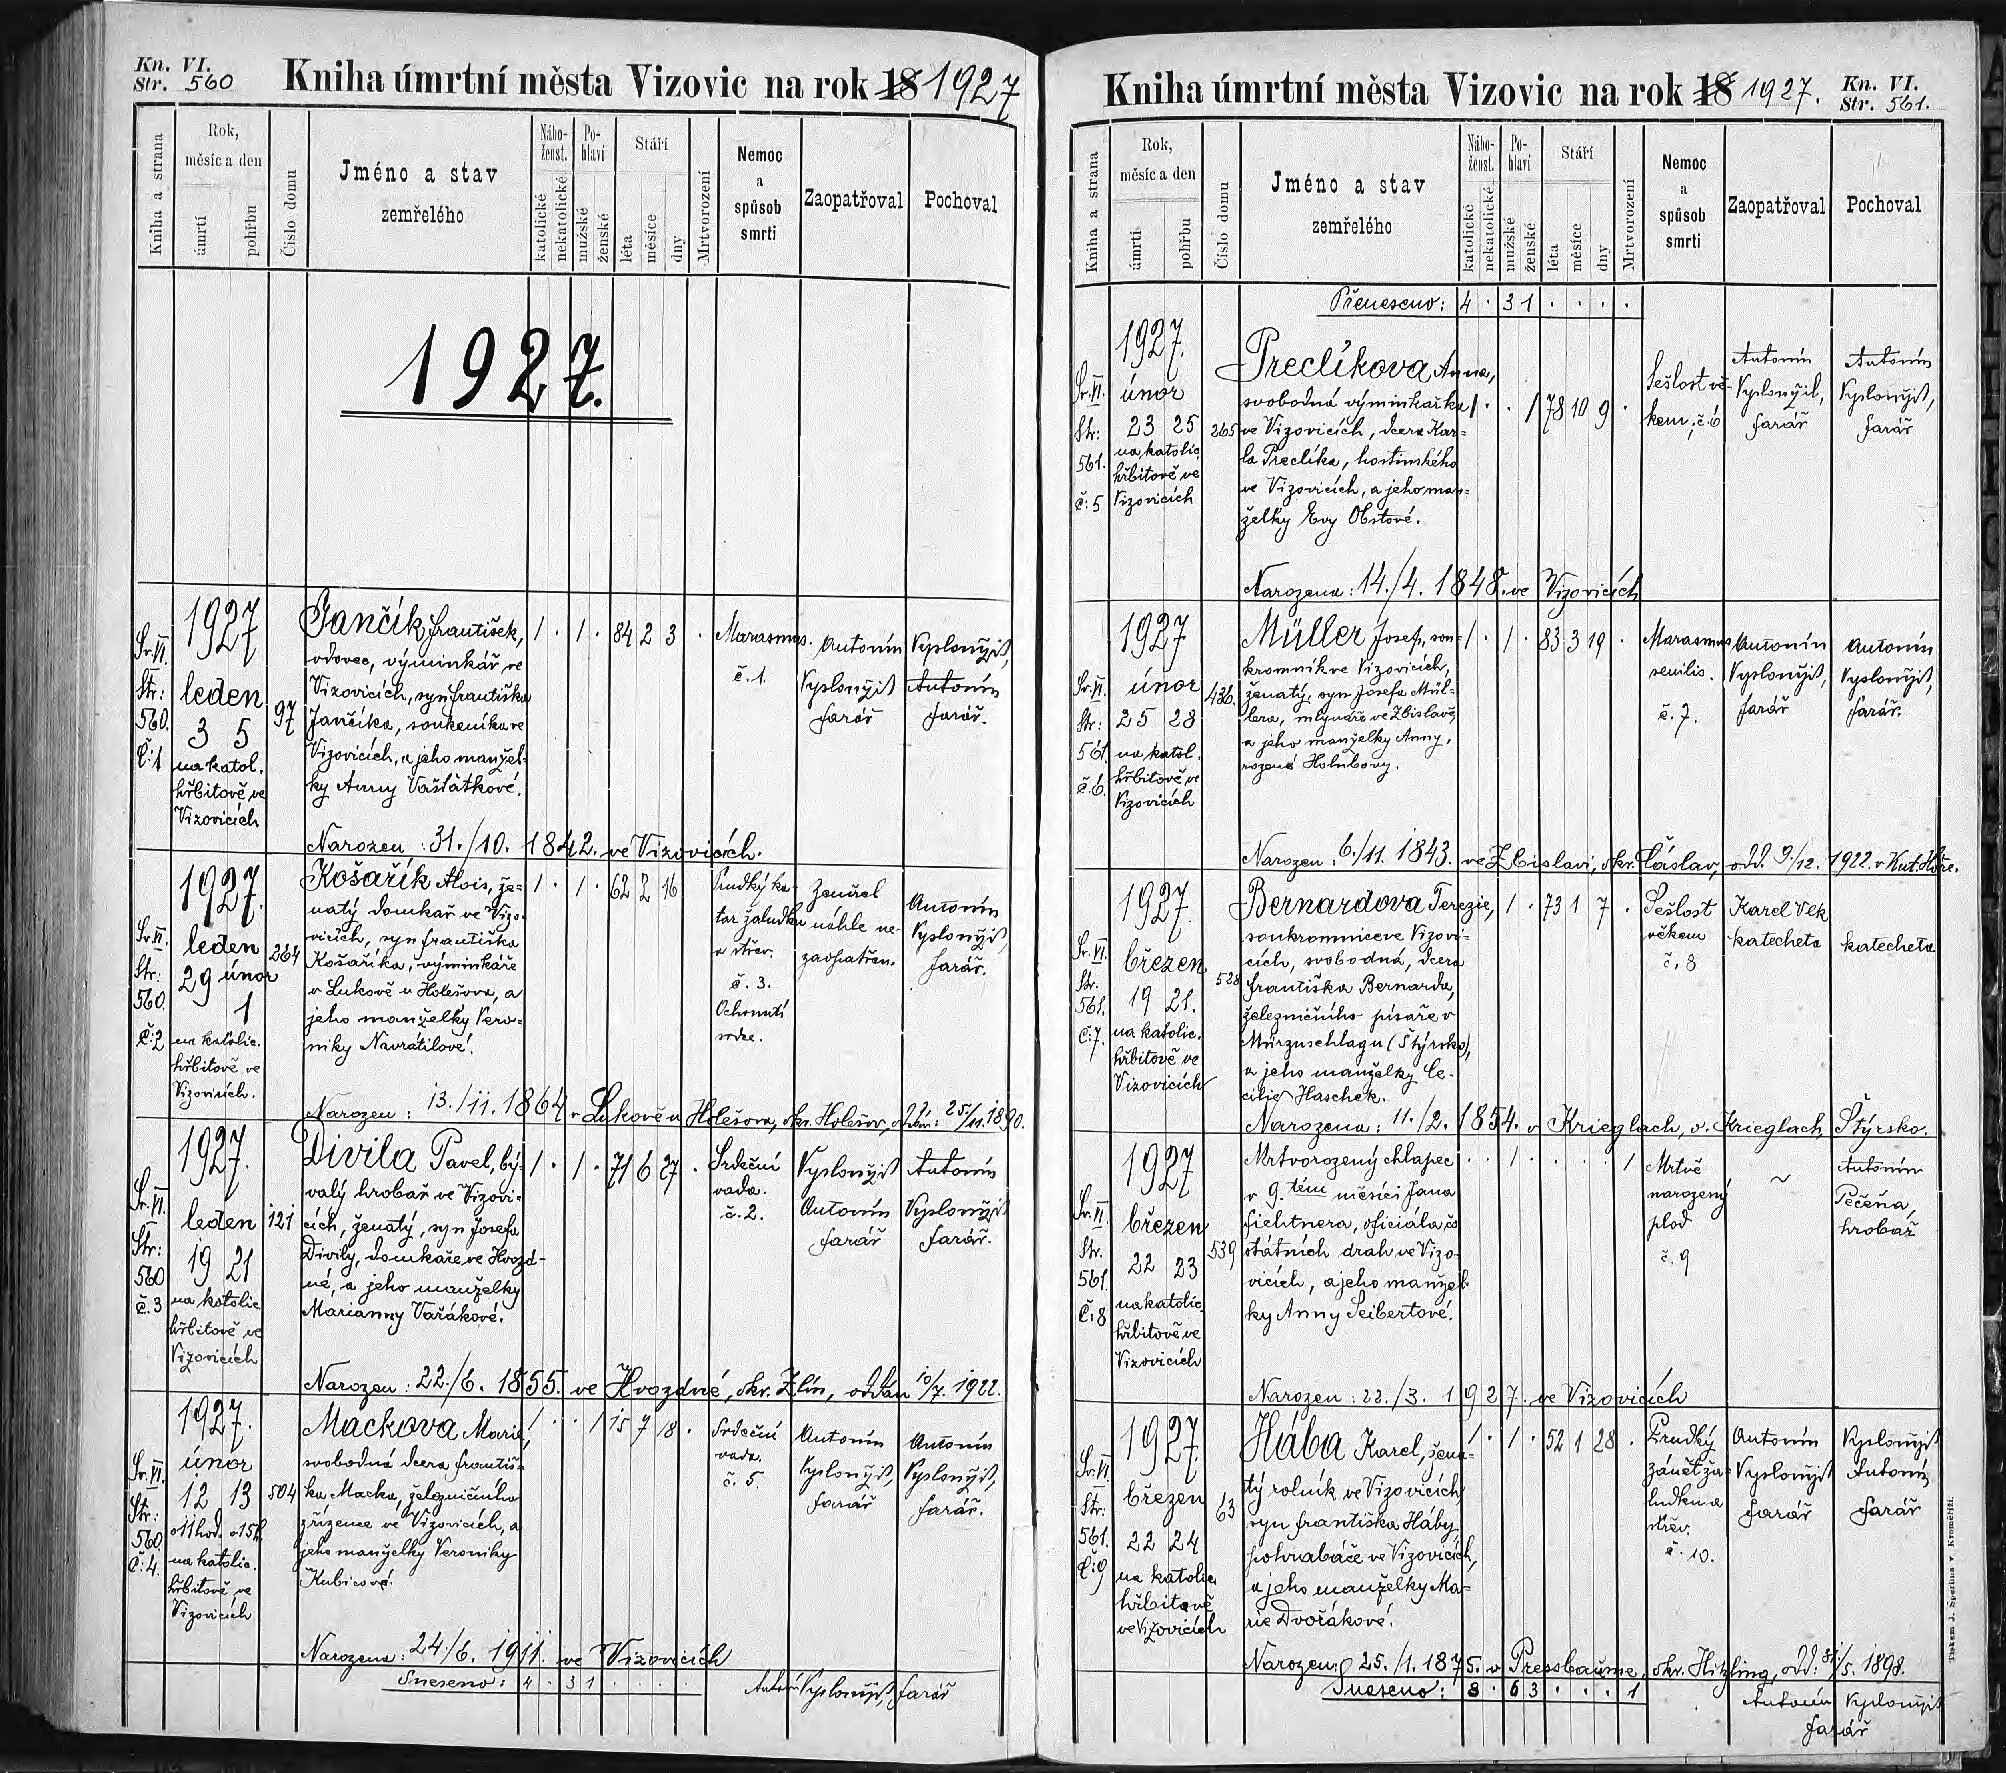 Kn. VI.
Str. 560
Kniha úmrtní města Vizovic na rok 18 1927
Kniha a strana
Rok, měsíc a den
úmrtí
pohřbu
Číslo domu
Jméno a stav
zemřelého
Nábo-
ženst.
katolické
nekatolické
Po-
hlaví
mužské
ženské
Stáří
léta
měsíce
dny
Mrtvorození
Nemoc
a
spůsob
smrti
Zaopatřoval
Pochoval
1927.
Sv. VI.
Str:
560.
Č:1
1927
leden
3 5
na katol.
hřbitově ve
Vizovicích
97
Jančík František,
vdovec, výminkář ve
Vizovicích, syn Františka
Jančíka, soukeníka ve
Vizovicích, a jeho manžel-
ky Anny Vašťátkové.
1 . 1 . 84 2 3 .
Marasmus.
č. 1.
Antonín
Vyslonžil
farář
Vyslonžil,
Antonín
farář.
Narozen: 31./10. 1842. ve Vizovicích.
Sv. VI.
Str:
560.
Č:2
1927.
leden
29 únor
1
na katolic.
hřbitově ve
Vizovicích.
264
Košařík Alois, že-
natý domkař ve Vizo-
vicích, syn Františka
Košaříka, výminkáře
v Lukově u Holešova, a
jeho manželky Vero-
niky Navrátilové.
1 . 1 . 62 2 16
Prudký ka-
tar žaludku
a střev.
č. 3.
Ochrnutí
srdce.
Zemřel
náhle ne-
zaopatřen.
Antonín
Vyslonžil,
farář.
Narozen: 13./11. 1864 v Lukově u Holešova, okr. Holešov, oddán: 25/11. 1890.
Sv. VI.
Str:
560
č. 3
1927.
leden
19 21
na katolic.
hřbitově ve
Vizovicích
121
Divila Pavel, bý-
valý hrobař ve Vizovi-
cích, ženatý, syn Josefa
Divily, domkaře ve Hvozd-
né, a jeho manželky
Marianny Vařákové.
1 . 1 . 71 6 27 .
Srdeční
vada.
č. 2.
Vyslonžil
Antonín
farář
Antonín
Vyslonžil
farář.
Narozen: 22./6. 1855. ve Hvozdné, okr. Zlín, oddán 10/7. 1922.
Sv. VI.
Str:
560
Č:4.
1927.
únor
12 13
o 11 hod. o 15 h.
na katolic.
hřbitově ve
Vizovicích
504
Mackova Marie,
svobodná dcera Františ-
ka Macka, železničního
zřízence ve Vizovicích, a
jeho manželky Veroniky
Kubicové.
1 . . 1 15 7 18 .
Srdeční
vada.
č. 5.
Antonín
Vyslonžil,
farář
Antonín
Vyslonžil,
farář.
Narozena: 24./6. 1911. ve Vizovicích
Sneseno: 4 . 3 1 . . . .
Antonín Vyslonžil, farář
Kniha úmrtní města Vizovic na rok 18 1927.
Kn. VI.
Str. 561.
Kniha a strana
Rok,
měsíc a den
úmrtí
pohřbu
Číslo domu
Jméno a stav
zemřelého
Nábo-
ženst.
katolické
nekatolické
Po-
hlaví
mužské
ženské
Stáří
léta
měsíce
dny
Mrtvorození
Nemoc
a
spůsob
smrti
Zaopatřoval
Pochoval
Přeneseno: 4 . 3 1 . . . .
Sv. VI.
Str:
561.
č: 5
1927.
únor
23 25
na katolic.
hřbitově ve
Vizovicích
265
Preclíkova Anna,
svobodná výminkářka
ve Vizovicích, dcera Kar-
la Preclíka, hostinského
ve Vizovicích, a jeho man-
želky Evy Obstové.
1 . . 1 78 10 9 .
Sešlost vě-
kem, č. 6
Antonín
Vyslonžil,
farář
Antonín
Vyslonžil,
farář
Narozena: 14./4. 1848. ve Vizovicích
Sv. VI.
Str:
561
č. 6.
1927
únor
25 28
na katol.
hřbitově ve
Vizovicích
436.
Müller Josef, sou-
kromník ve Vizovicích,
ženatý, syn Josefa Mül-
lera, mlynáře ve Zbislavě,
a jeho manželky Anny,
rozené Holubovy.
1 . 1 . 83 3 19 .
Marasmus
senilis.
č. 7.
Antonín
Vyslonžil,
farář
Antonín
Vyslonžil,
farář.
Narozen: 6./11. 1843. ve Zbislavi, okr. Čáslav, odd. 9./12. 1922. v Kut. Hoře.
Sv. VI.
Str.
561.
Č:7.
1927.
březen
19 21.
na katolic.
hřbitově ve
Vizovicích
528
Bernardova Terezie,
soukromnice ve Vizovi-
cích, svobodná, dcera
Františka Bernarda,
železničního písaře v
Mürzuschlagu (Štýrsko),
a jeho manželky Ce-
cilie Haschek.
1 . 73 1 7 .
Sešlost
věkem
č. 8
Karel Vlk
katecheta
katecheta
Narozena: 11./2. 1854. v Krieglach, o. Krieglach, Štýrsko.
Sv. VI.
Str.
561
Č:8
1927
březen
22 23
na katolic.
hřbitově ve
Vizovicích
539
Mrtvorozený chlapec
v 9. tém měsíci Jana
Fichtnera, oficiála čs
státních drah ve Vizo-
vicích, a jeho manžel-
ky Anny Seibertové.
. . 1 . . . . 1
Mrtvě
narozený
plod
č. 9
~
Antonín
Pečeňa,
hrobař
Narozen: 22./3. 1927. ve Vizovicích
Sv. VI.
Str:
561.
Č:9
1927.
březen
22 24
na katolic.
hřbitově
ve Vizovicích
63
Hába Karel, žena-
tý rolník ve Vizovicích,
syn Františka Háby,
pohrabáče ve Vizovicích,
a jeho manželky Ma-
rie Dvořákové.
1 . 1 . 52 1 28 .
Prudký
zánět ža-
ludku a
střev.
č. 10.
Antonín
Vyslonžil
farář
Vyslonžil
Antonín,
farář
Narozen: 25./1. 1875. v Pressbaume, okr. Hitzling, odd: 31/5. 1898.
Sneseno: 8 . 6 3 . . . 1
Antonín Vyslonžil
farář
Tiskem J. Sperlina v Kroměříži.